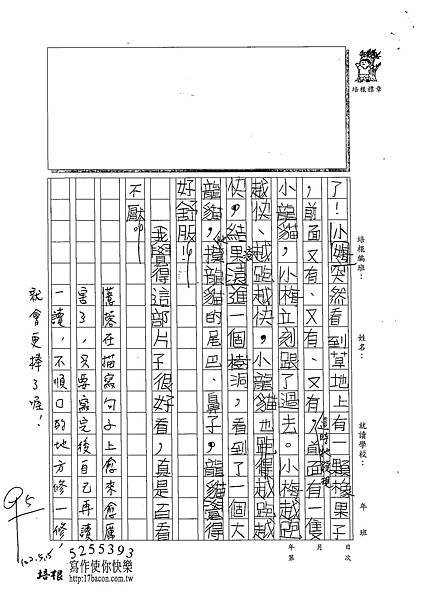 培根標章
培根編班：
姓名：
就讀學校：
年 班
了！小梅突然看到草地上有一顆橡果子
，前面又有、又有、又有，前面有一隻
這時她發現
小龍貓，小梅立刻跟了過去。小梅越跑
越快、越跑越快，小龍貓也跑得越跑越
快，結果滾進一個樹洞，看到了一個大
龍貓，摸龍貓的尾巴、鼻子，龍貓覺得
她
好舒服！
我覺得這部片子很好看，真是百看
不厭。
蕙蓉在描寫句子上愈來愈厲
害了，只要寫完後自己再讀
一讀，不順口的地方修一修
就會更棒了喔！
95
102.5.15
年 月 日
第 次
5255393
培根 寫作使你快樂
http://17bacon.com.tw